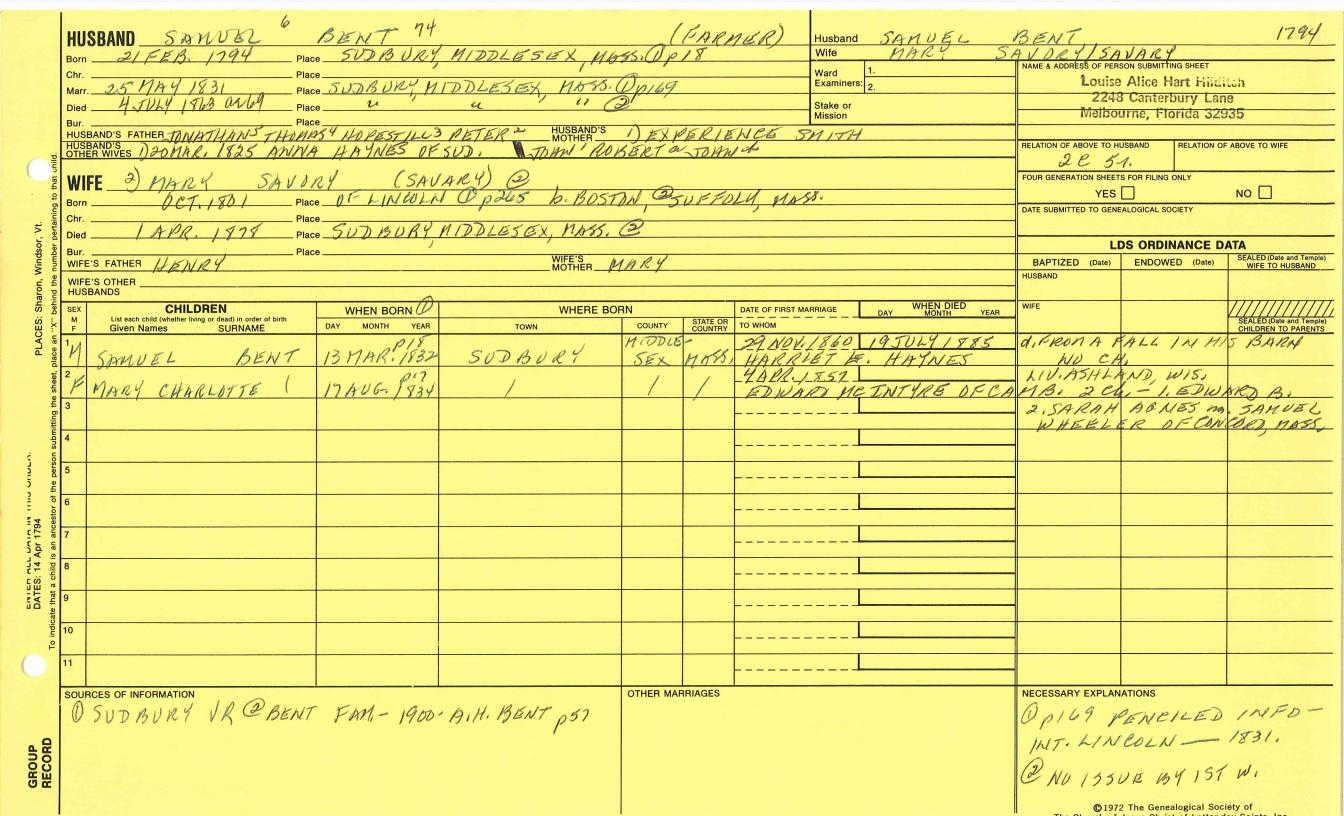 HUSBAND SAMUEL 6 BENT 74 (FARMER)
Born 21 FEB. 1794 Place SUDBURY, MIDDLESEX, MASS. ① p18
Chr. Place
Marr. 25 MAY 1831 Place SUDBURY, MIDDLESEX, MASS. ① p169
Died 4 JULY 1863 or 64 Place " " " ②
Bur. Place
HUSBAND'S FATHER JONATHAN5 THOMAS4 HOPESTILL3 PETER2 HUSBAND'S MOTHER 1) EXPERIENCE SMITH
HUSBAND'S OTHER WIVES 1) 20 MAR. 1825 ANNA HAYNES OF SUD. JOHN1 ROBERTa JOHNb
WIFE 2) MARY SAVORY (SAVARY) ②
Born OCT. 1801 Place OF LINCOLN ① p265 b. BOSTON, ② SUFFOLK, MASS.
Chr. Place
Died 1 APR. 1878 Place SUDBURY, MIDDLESEX, MASS. ②
Bur. Place
WIFE'S FATHER HENRY WIFE'S MOTHER MARY
WIFE'S OTHER HUSBANDS
Husband SAMUEL BENT 1794
Wife MARY SAVORY/SAVARY
Ward Examiners: 1.
2.
Stake or Mission
NAME & ADDRESS OF PERSON SUBMITTING SHEET
Louise Alice Hart Hilditch
2248 Canterbury Lane
Melbourne, Florida 32935
RELATION OF ABOVE TO HUSBAND RELATION OF ABOVE TO WIFE
2c 5r.
FOUR GENERATION SHEETS FOR FILING ONLY
YES NO
DATE SUBMITTED TO GENEALOGICAL SOCIETY
LDS ORDINANCE DATA
BAPTIZED (Date) ENDOWED (Date) SEALED (Date and Temple) WIFE TO HUSBAND
HUSBAND
WIFE
SEALED (Date and Temple) CHILDREN TO PARENTS
SEX M F
CHILDREN
List each child (whether living or dead) in order of birth
Given Names SURNAME
WHEN BORN ①
DAY MONTH YEAR
WHERE BORN
TOWN COUNTY STATE OR COUNTRY
DATE OF FIRST MARRIAGE
TO WHOM
WHEN DIED
DAY MONTH YEAR
1 M SAMUEL BENT 13 MAR. 1832 p18 SUDBURY MIDDLESEX MASS. 29 NOV. 1860 19 JULY 1885 d. FROM A FALL IN HIS BARN
HARRIET E. HAYNES NO CH.
2 F MARY CHARLOTTE 17 AUG. 1834 p17 4 APR. 1857 LIV. ASHLAND, WIS.
EDWARD MCINTYRE OF CAMB. 2 CH. - 1. EDWARD B.
3 2. SARAH AGNES m. SAMUEL
WHEELER OF CONCORD, MASS.
4
5
6
7
8
9
10
11
SOURCES OF INFORMATION
① SUDBURY VR ② BENT FAM. - 1900 - A.H. BENT p57
OTHER MARRIAGES
NECESSARY EXPLANATIONS
① p169 PENCILED INFO -
INT. LINCOLN — 1831.
② NO ISSUE BY 1ST W.
©1972 The Genealogical Society of
PLACES: Sharon, Windsor, Vt.
DATES: 14 Apr 1794
To indicate that a child is an ancestor of the person submitting the sheet, place an "X" behind the number pertaining to that child.
GROUP RECORD